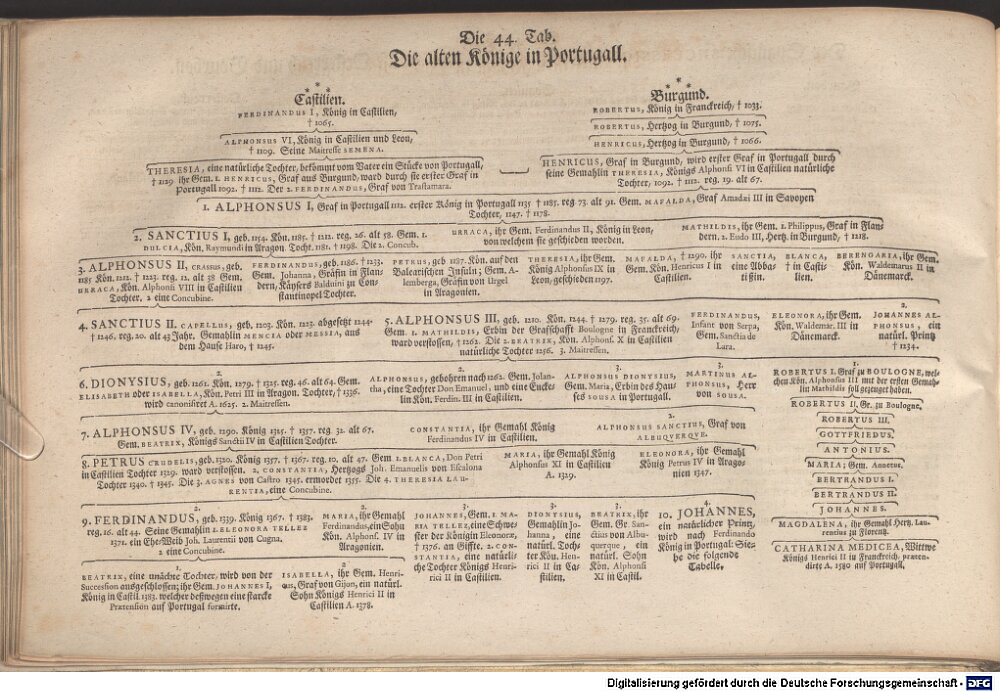 Die 44. Tab.
Die alten Könige in Portugall.
Castilien.
FERDINANDUS I, König in Castilien,
† 1065.
ALPHONSUS VI, König in Castilien und Leon,
† 1109. Seine Maitresse SEMENA.
THERESIA, eine natürliche Tochter, bekömmt vom Vater ein Stücke von Portugall,
† 1129 ihr Gem. 1. HENRICUS, Graf aus Burgund, ward durch sie erster Graf in
Portugall 1092. † 1112. Der 2. FERDINANDUS, Graf von Trastamara.
Burgund.
ROBERTUS, König in Franckreich, † 1033.
ROBERTUS, Hertzog in Burgund, † 1075.
HENRICUS, Hertzog in Burgund, † 1066.
HENRICUS, Graf in Burgund, wird erster Graf in Portugall durch
seine Gemahlin THERESIA, Königs Alphonsi VI in Castilien natürliche
Tochter, 1092. † 1112. reg. 19. alt 67.
1. ALPHONSUS I, Graf in Portugall 1112. erster König in Portugall 1135 † 1185. reg 73. alt 91. Gem. MAFALDA, Graf Amadæi III in Savoyen
Tochter, 1147. † 1178.
2. SANCTIUS I, geb. 1154. Kön. 1185. † 1212. reg. 26. alt 58. Gem. 1.
DULCIA, Kön. Raymundi in Aragon. Tocht. 1181. † 1198. Die 2. Concub.
URRACA, ihr Gem. Ferdinandus II, König in Leon,
von welchem sie geschieden worden.
MATHILDIS, ihr Gem. 1. Philippus, Graf in Flan-
dern. 2. Eudo III, Hertz. in Burgund, † 1218.
3. ALPHONSUS II, CRASSUS, geb.
1185. Kön. 1212. † 1223. reg. 12. alt 38 Gem.
URRACA, Kön. Alphonsi VIII in Castilien
Tochter. 2 eine Concubine.
FERDINANDUS, geb. 1186. † 1233.
Gem. Johanna, Gräfin in Flan-
dern, Käysers Balduini zu Con-
stantinopel Tochter.
PETRUS, geb 1187. Kön. auf den
Balearischen Insuln; Gem. A-
lemberga, Gräfin von Urgel
in Arragonien.
THERESIA, ihr Gem.
König Alphonsus IX in
Leon, geschieden 1197.
MAFALDA, † 1290. ihr
Gem. Kön. Henricus I in
Castilien.
SANCTIA,
eine Abba-
tißin.
BLANCA,
† in Casti-
lien.
BERENGARIA, ihr Gem.
Kön. Waldemarus II in
Dänemarck.
4. SANCTIUS II. CAPELLUS, geb. 1203. Kön. 1223. abgesetzt 1244-
† 1246. reg. 20. alt 43 Jahr. Gemahlin MENCIA oder MESSIA, aus
dem Hause Haro, † 1245.
5. ALPHONSUS III, geb. 1210. Kön. 1244. † 1279. reg. 35. alt 69.
Gem. 1. MATHILDIS, Erbin der Grafschafft Boulogne in Franckreich,
ward verstossen, † 1262. Die 2. BEATRIX, Kön. Alphons. X in Castilien
natürliche Tochter 1256. 3. Maitressen.
FERDINANDUS,
Infant von Serpa,
Gem. Sanctia de
Lara.
ELEONORA, ihr Gem.
Kön. Waldemar. III in
Dänemarck.
2.
JOHANNES AL-
PHONSUS, ein
natürl. Printz
† 1234.
2.
6. DIONYSIUS, geb. 1261. Kön. 1279. † 1325. reg. 46. alt 64. Gem.
ELISABETH oder ISABELLA, Kön. Petri III in Aragon. Tochter, † 1336.
wird canonisiret A. 1625. 2. Maitressen.
2.
ALPHONSUS, gebohren nach 1262. Gem. Jolan-
tha, eine Tochter Don Emanuel, und eine Encke-
lin Kön. Ferdin. III in Castilien.
3.
ALPHONSUS DIONYSIUS,
Gem. Maria, Erbin des Hau-
ses SOUSA in Portugall.
3.
MARTINUS AL-
PHONSUS, Herr
von SOUSA.
1.
ROBERTUS I. Graf zu BOULOGNE, wel-
chen Kön. Alphonsus III mit der ersten Gemah-
lin Mathildis soll gezeuget haben.
ROBERTUS II. Gr. zu Boulogne,
ROBERTUS III.
GOTTFRIEDUS.
ANTONIUS.
MARIA; Gem. Annetus.
BERTRANDUS I.
BERTRANDUS II.
JOHANNES.
MAGDALENA, ihr Gemahl Hertz. Lau-
rentius zu Florentz.
CATHARINA MEDICEA, Wittwe
Königs Henrici II in Franckreich. præten-
dirte A. 1580 auf Portugall.
7. ALPHONSUS IV, geb. 1290. König 1325. † 1357. reg. 32. alt 67.
Gem. BEATRIX, Königs Sanctii IV in Castilien Tochter.
CONSTANTIA, ihr Gemahl König
Ferdinandus IV in Castilien.
2.
ALPHONSUS SANCTIUS, Graf von
ALBUQVERQVE.
8. PETRUS CRUDELIS, geb. 1320. König 1357. † 1367. reg. 10. alt 47. Gem 1. BLANCA, Don Petri
in Castilien Tochter 1329. ward verstossen. 2. CONSTANTIA, Hertzogs Joh. Emanuelis von Escalona
Tochter 1340. † 1345. Die 3. AGNES von Castro 1345. ermordet 1355. Die 4. THERESIA LAU-
RENTIA, eine Concubine.
MARIA, ihr Gemahl König
Alphonsus XI in Castilien
A. 1329.
ELEONORA, ihr Gemahl
König Petrus IV in Arago-
nien 1347.
2.
9. FERDINANDUS, geb. 1339. König 1367. † 1383.
reg. 16. alt 44. Seine Gemahlin 1. ELEONORA TELLEZ
1371. ein Ehe-Weib Joh. Laurentii von Cugna.
2 eine Concubine.
2.
MARIA, ihr Gemahl
Ferdinandus, ein Sohn
Kön. Alphons. IV in
Aragonien.
3.
JOHANNES, Gem. 1. MA-
RIA TELLEZ, eine Schwe-
ster der Königin Eleonoræ,
† 1376. an Giffte. 2. CON-
STANTIA, eine natürli-
che Tochter Königs Henri-
rici II in Castilien.
3.
DIONYSIUS,
Gemahlin Jo-
hanna, eine
natürl. Toch-
ter Kön. Hen-
rici II in Ca-
stilien.
3.
BEATRIX, ihr
Gem. Gr. San-
ctius von Albu-
querque, ein
natürl. Sohn
Kön. Alphons
XI in Castil.
4.
10. JOHANNES,
ein natürlicher Printz,
wird nach Ferdinando
König in Portugal: Sie-
he die folgende
Tabelle.
1.
BEATRIX, eine unächte Tochter, wird von der
Succession ausgeschlossen; ihr Gem. JOHANNES I,
König in Castil. 1383. welcher deßwegen eine starcke
Prætension auf Portugal formirte.
2
ISABELLA, ihr Gem. Henri-
cus, Graf von Gijon, ein natürl.
Sohn Königs Henrici II in
Castilien A. 1378.
Digitalisierung gefördert durch die Deutsche Forschungsgemeinschaft - DFG